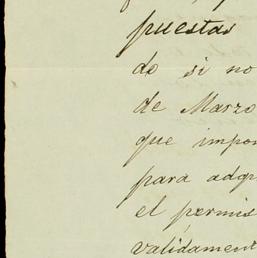 puestas
do si no
de Marzo
que impor
para adq
el permis
validament